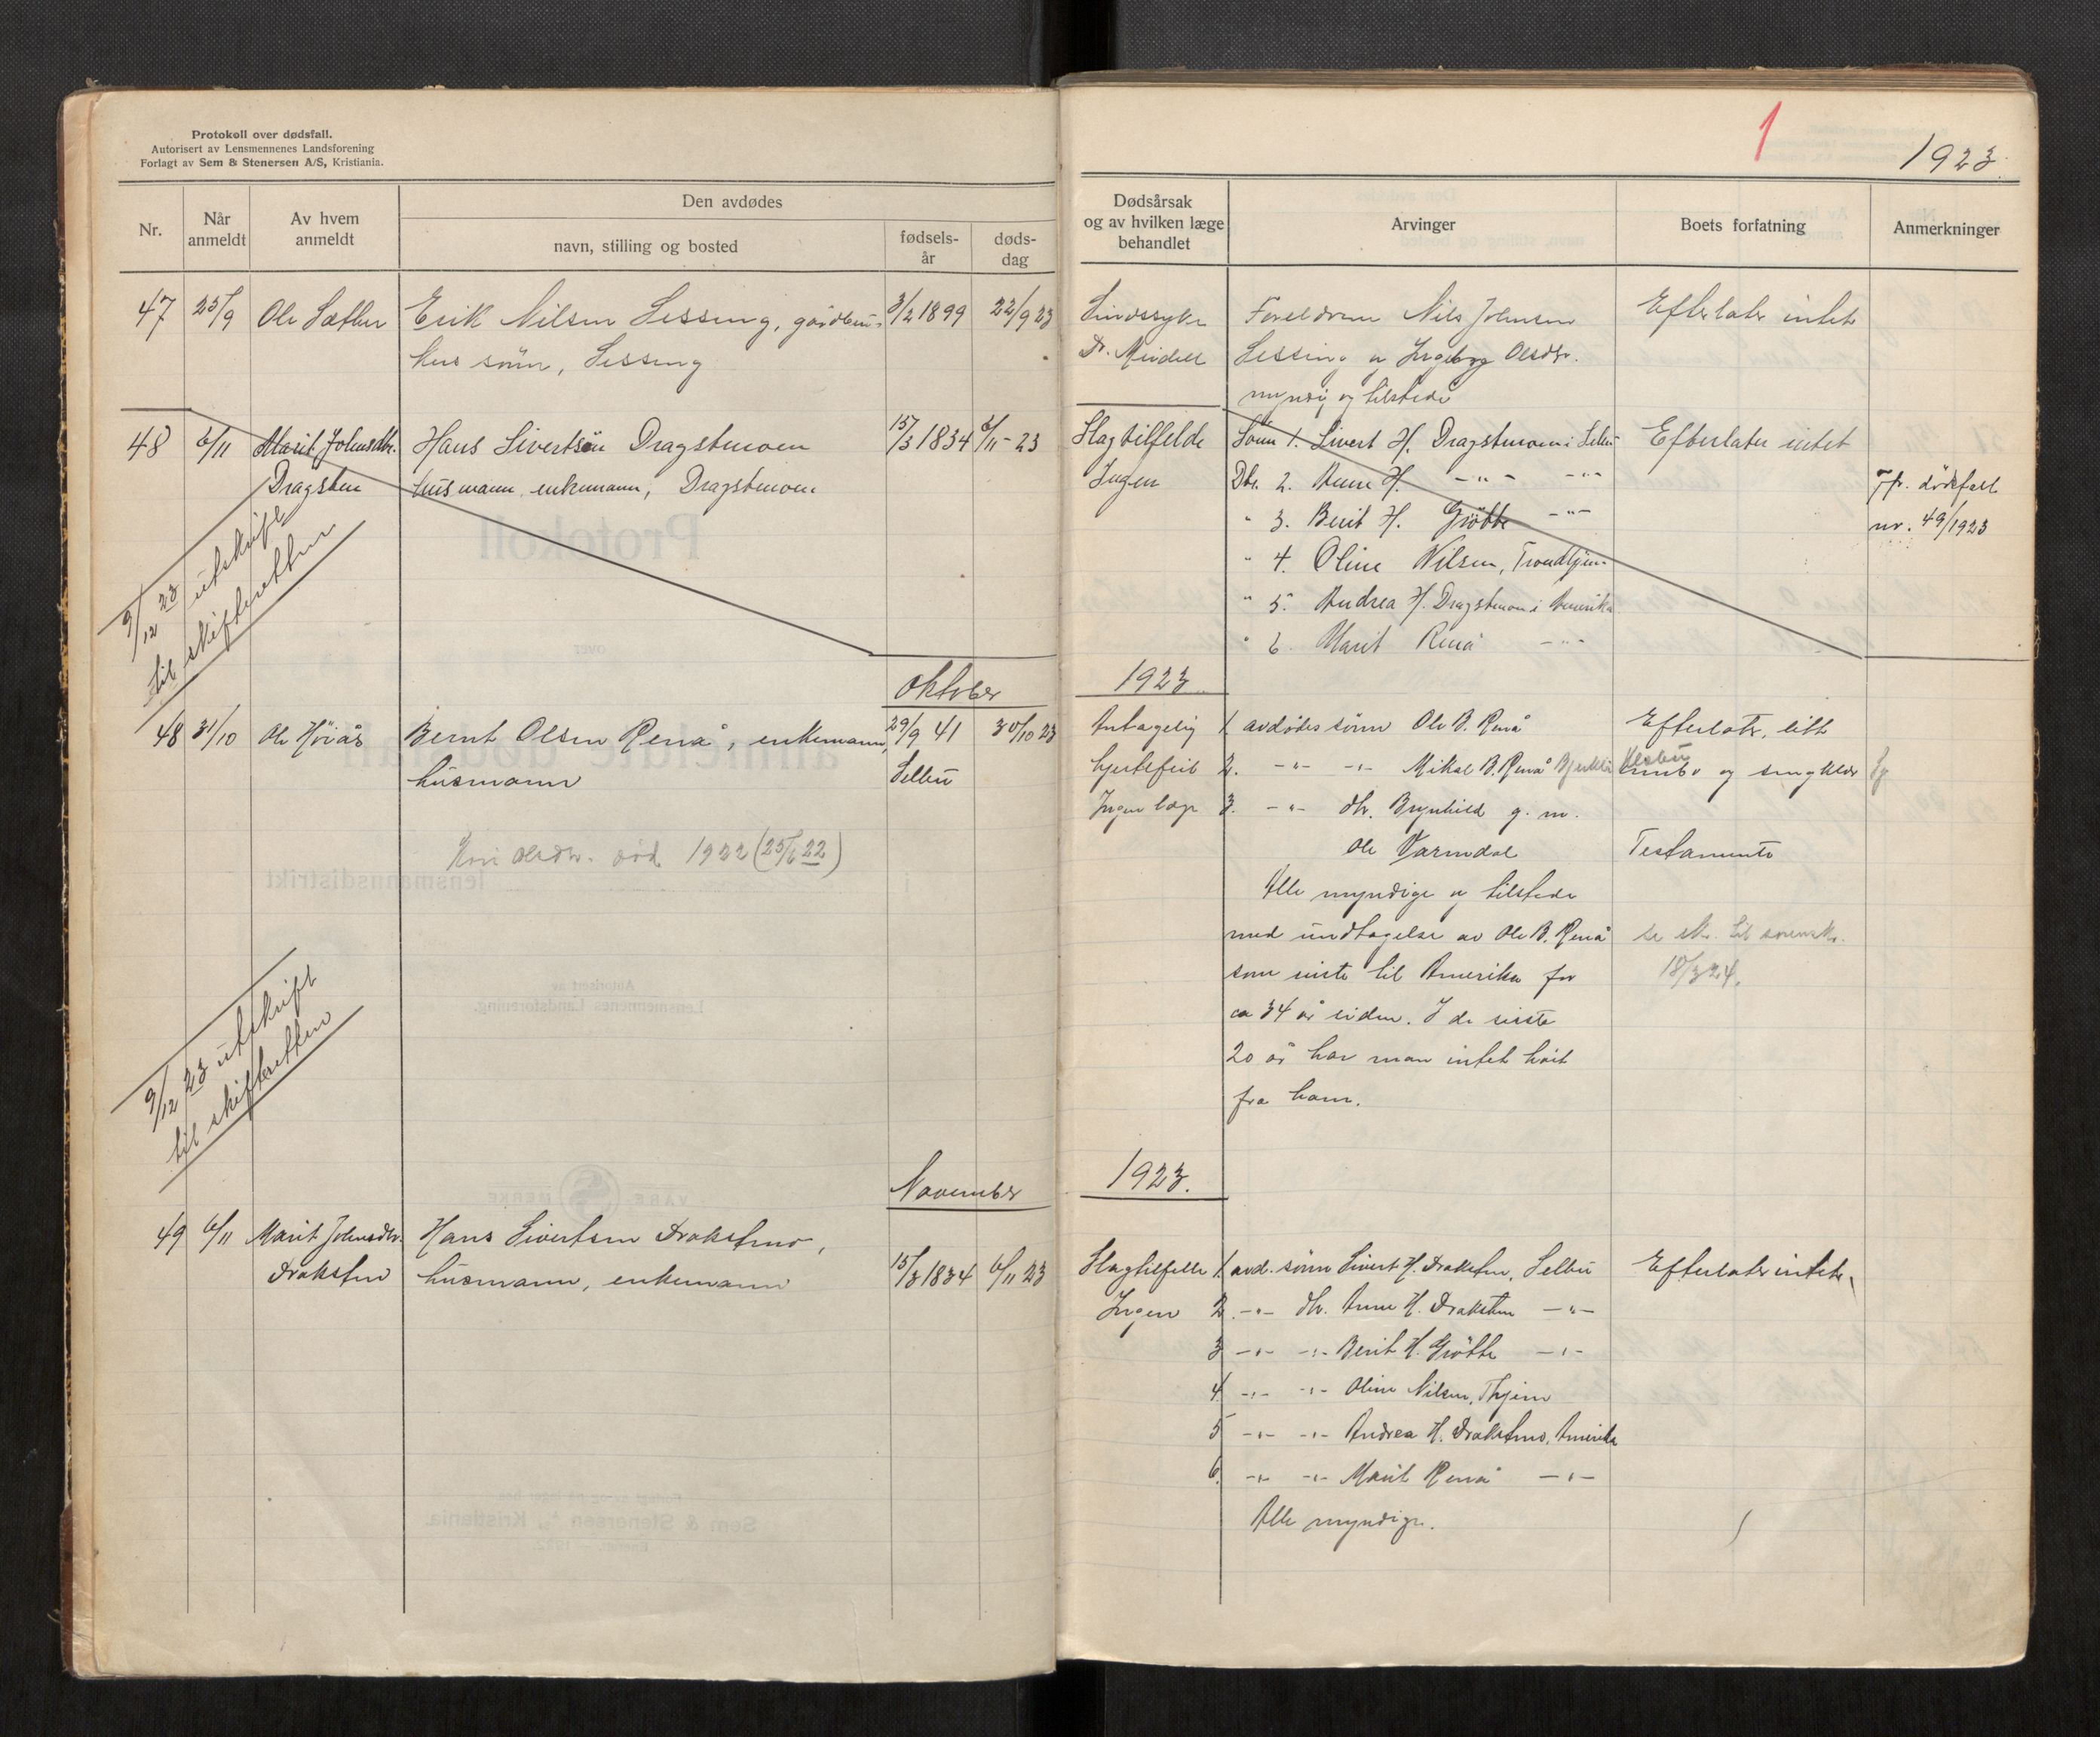 Protokoll over dødsfall.
Autorisert av Lensmennenes Landsforening
Forlagt av Sem & Stenersen A/S, Kristiania.
1
1923.
Nr.
Når anmeldt
Av hvem anmeldt
Den avdødes
navn, stilling og bosted
fødsels-år
døds-dag
Dødsårsak og av hvilken læge behandlet
Arvinger
Boets forfatning
Anmerkninger
47 25/9 Ole Sæther Erik Nilsen Sessing, gårdbru- 3/2 1899 22/9 23
kers sönn, Sessing
Sindssyke
Dr.
Foreldrene Nils Johnsen
Sessing og Ingeborg Olsdtr.
myndig og tilstede
Efterlater intet
48 6/11 Marit Johnsdtr. Hans Sivertsen Dragstmoen 15/3 1834 6/11-23
Dragsten husmann, enkemann, Dragstmoen
Slagtilfelde
Ingen
Sönn 1. Sivert H. Dragstmoen i Selbu
Dtr. 2. Anne H. -"- -"-
" 3. Berit H. Grötte -"-
" 4. Oline Nilsen, Trondhjem
" 5. Andrea H. Dragstmoen i Amerika
" 6. Marit Renå -"-
Efterlater intet
Jfr. dödsfall
nr. 49/1923
9/12 23 utskrift
til skifteretten
Oktober 1923
48 31/10 Ole Höiås Bernt Olsen Renå, enkemann, 29/9 41 30/10 23
husmann Selbu
Kari Olsdtr. död 1922 (25/6 22)
Antagelig
hjertefeil
Ingen læge
1. avdödes sönn Ole B. Renå
2. -"- -"- Mikal B. Renå
3. -"- dtr. Brynhild g. m.
Ole Varmdal
Alle myndige og tilstede
med undtagelse av Ole B. Renå
som reiste til Amerika for
ca 34 år siden. I de siste
20 år har man intet hört
fra ham.
Efterlater litt
innbo og sengklær
Testamente
se skr. til sorenskr.
18/3 24.
9/12 23 utskrift
til skifteretten
November 1923.
49 6/11 Marit Johnsdtr. Hans Sivertsen Drakstmo,
Draksten husmann, enkemann 15/3 1834 6/11 23
Slagtilfelle
Ingen
1. avd. sönn Sivert H. Draksten, Selbu
2. -"- dtr. Anne H. Draksten -"-
3 -"- -"- Berit H. Grötte -"-
4 -"- -"- Oline Nilsen, Thjem
5 -"- -"- Andrea H. Drakstmo, Amerika
6. -"- -"- Marit Renå -"-
Alle myndige.
Efterlater intet